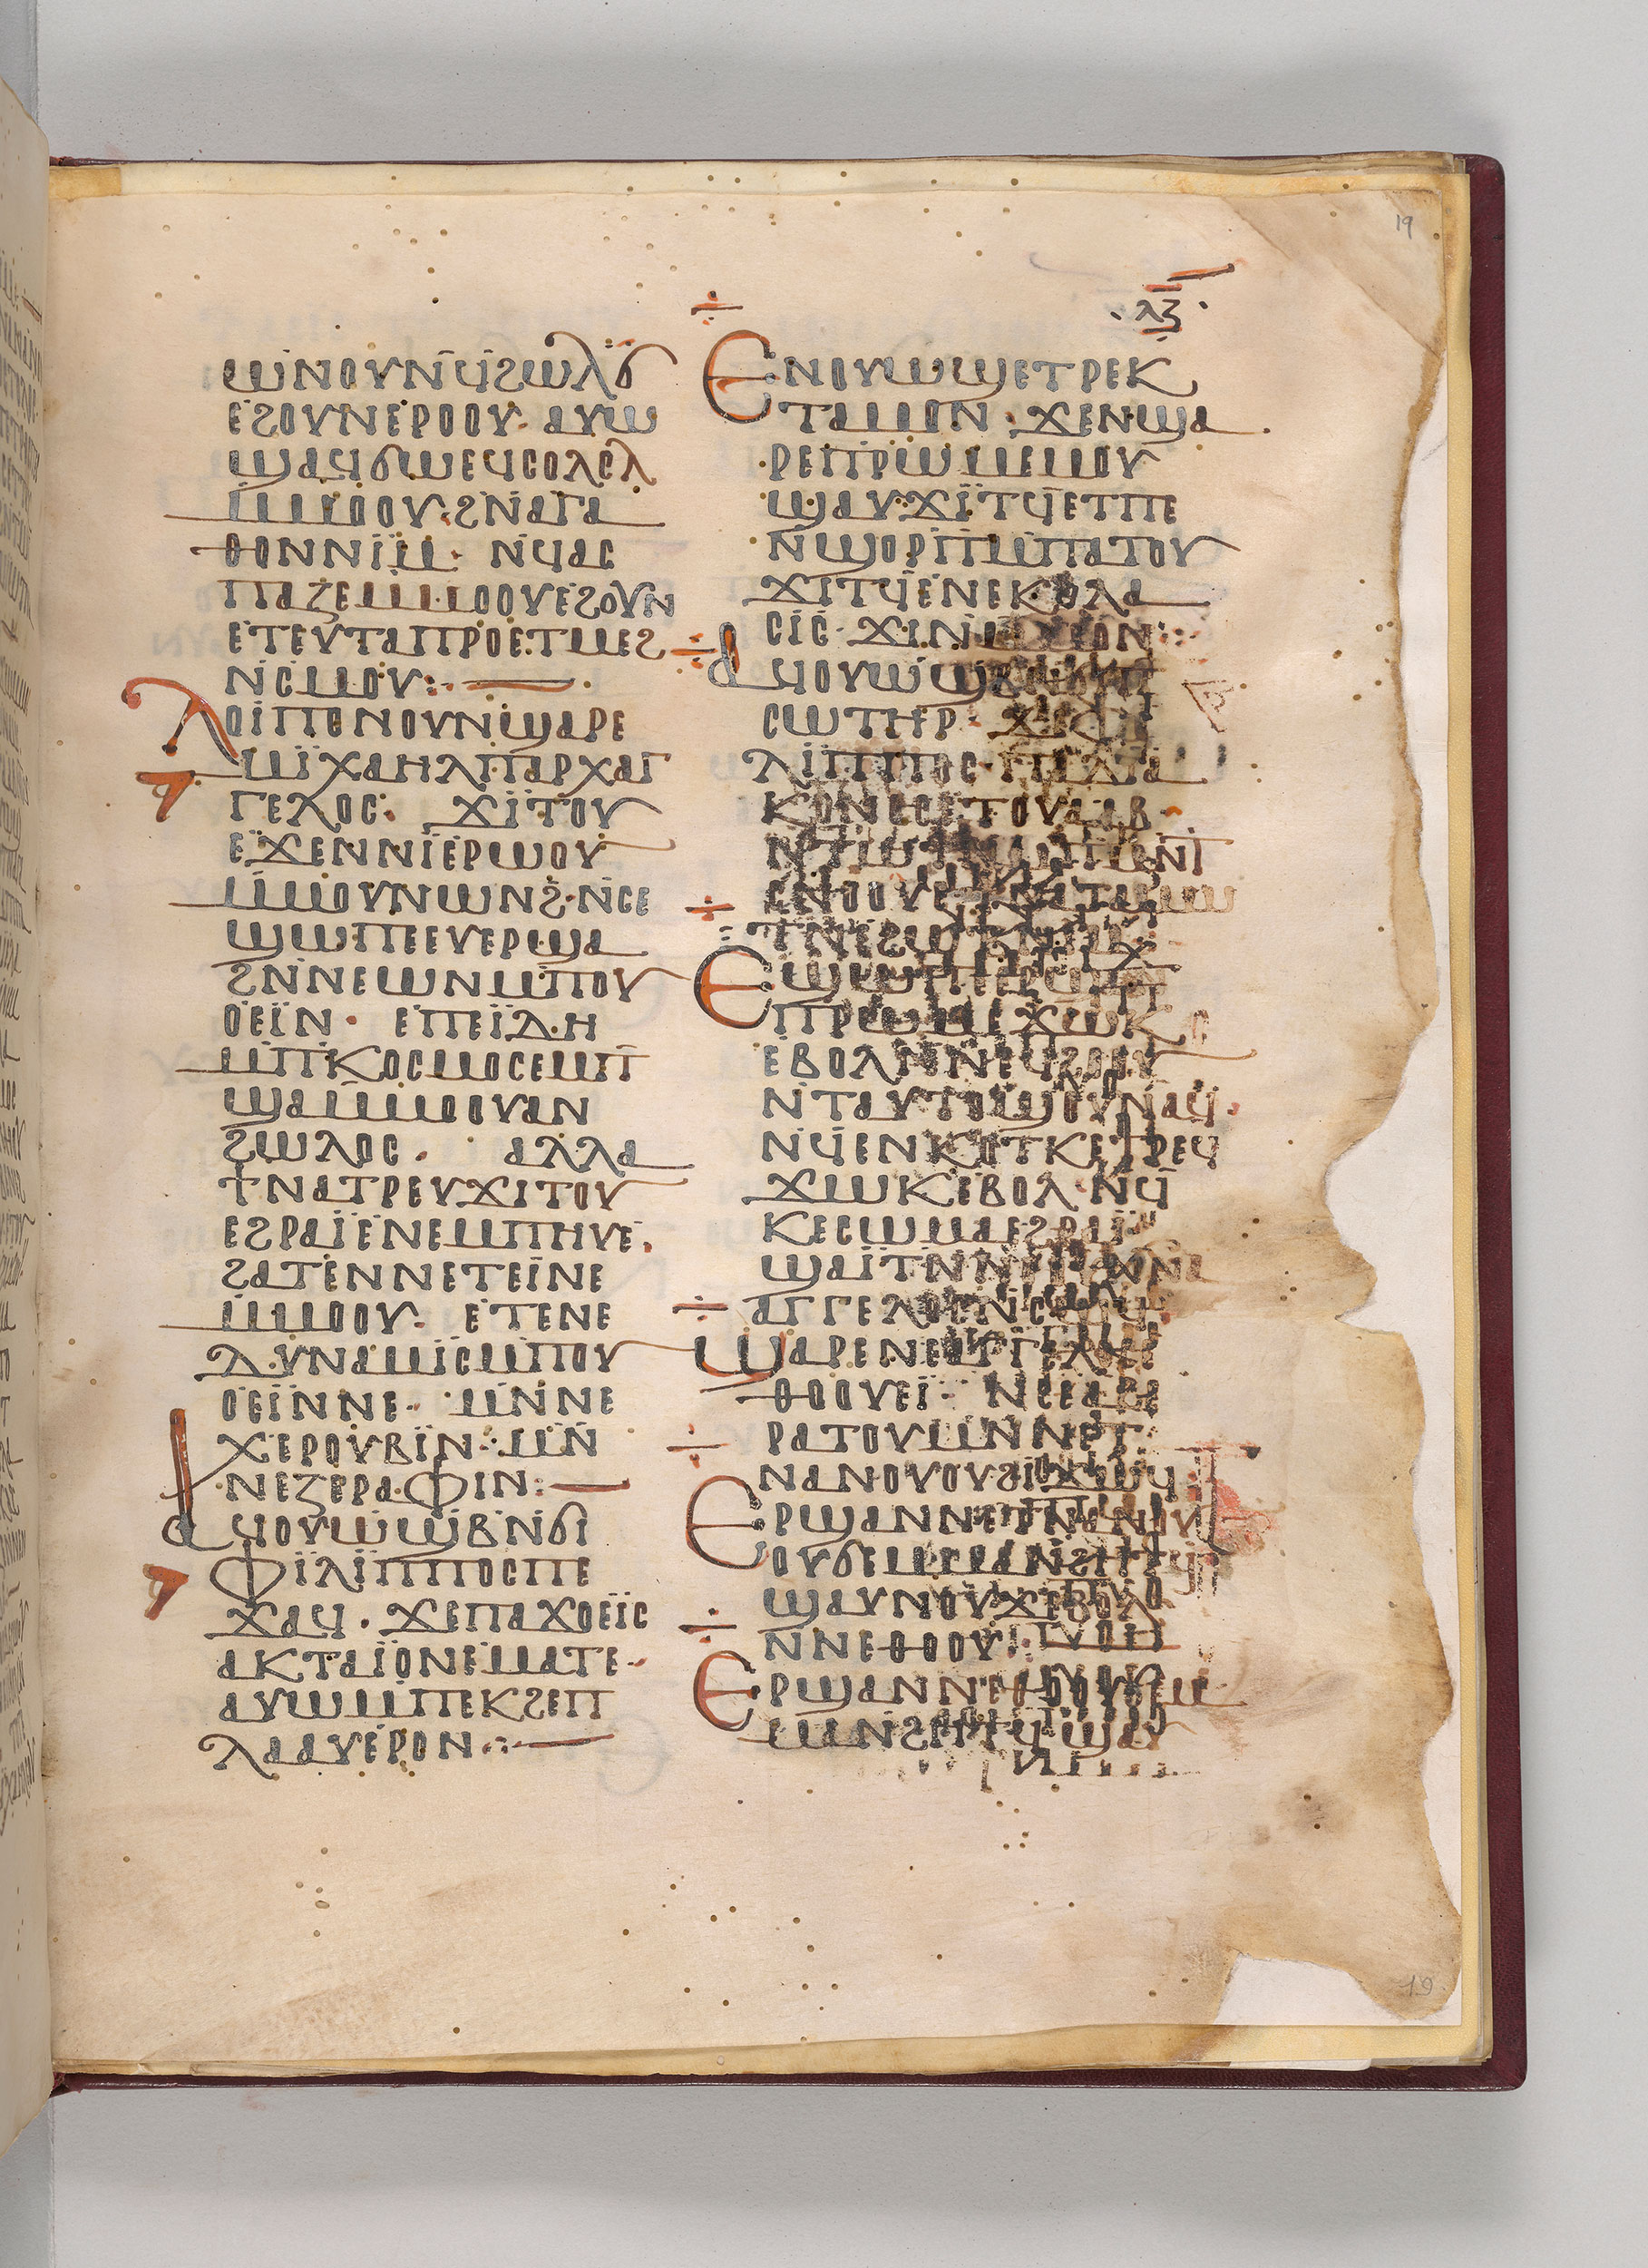 19
·ⲗⲍ·
ϣⲓⲛⲟⲩⲛϥϩⲱⲗϭ
ⲉϩⲟⲩⲛⲉⲣⲟⲟⲩ· ⲁⲩⲱ
ϣⲁϥϭⲱⲉϥⲥⲟⲗⲥⲗ
ⲙⲙⲟⲟⲩ· ϩⲛⲁⲅⲁ
ⲑⲟⲛⲛⲓⲙ· ⲛϥⲁⲥ
ⲡⲁⲍⲉⲙⲙⲟⲟⲩⲉϩⲟⲩⲛ
ⲉⲧⲉⲩⲧⲁⲡⲣⲟⲉⲧⲙⲉϩ
ⲛⲥⲙⲟⲩ:
ⲗⲟⲓⲡⲟⲛⲟⲩⲛϣⲁⲣⲉ
ⲙⲓⲭⲁⲏⲗⲡⲁⲣⲭⲁⲅ
ⲅⲉⲗⲟⲥ· ϫⲓⲧⲟⲩ
ⲉϫⲉⲛⲛⲓⲉⲣⲱⲟⲩ
ⲙⲙⲟⲩⲛⲱⲛϩ·ⲛⲥⲉ
ϣⲱⲡⲉⲉⲩⲉⲣϣⲁ
ϩⲛⲛⲉⲱⲛⲙⲡⲟⲩ
ⲟⲉⲓⲛ· ⲉⲡⲉⲓⲇⲏ
ⲙⲡⲕⲟⲥⲙⲟⲥⲉⲙⲡ
ϣⲁⲙⲙⲟⲟⲩⲁⲛ
ϩⲱⲗⲟⲥ. ⲁⲗⲗⲁ
ϯⲛⲁⲧⲣⲉⲩϫⲓⲧⲟⲩ
ⲉϩⲣⲁⲓⲉⲛⲉⲙⲡⲏⲩⲉ.
ϩⲁⲧⲉⲛⲛⲉⲧⲉⲓⲛⲉ
ⲙⲙⲟⲟⲩ. ⲉⲧⲉⲛⲉ
ⲇⲩⲛⲁⲙⲓⲥⲙⲡⲟⲩ
ⲟⲉⲓⲛⲛⲉ· ⲙⲛⲛⲉ
ⲭⲉⲣⲟⲩⲃⲓⲛ· ⲙⲛ
ⲛⲉⲍⲉⲣⲁⲫⲓⲛ:
ⲁϥⲟⲩⲱϣⲃⲛϭⲓ
ⲫⲓⲗⲓⲡⲡⲟⲥⲡⲉ
ϫⲁϥ· ϫⲉⲡⲁϫⲟⲉⲓⲥ
ⲁⲕⲧⲁⲓⲟⲛⲉⲙⲁⲧⲉ·
ⲁⲩⲱⲙⲡⲉⲕϩⲉⲡ
ⲗⲁⲁⲩⲉⲣⲟⲛ·:
ⲉⲛⲟⲩⲱϣⲉⲧⲣⲉⲕ
ⲧⲁⲙⲟⲛ· ϫⲉⲛϣⲁ
ⲣⲉⲡⲣⲱⲙⲉⲙⲟⲩ
ϣⲁⲩϫⲓⲧϥⲉⲧⲡⲉ
ⲛϣⲟⲣⲡⲙⲡⲁⲧⲟⲩ
ϫⲓⲧϥⲉⲛⲉⲕⲟⲗⲁ
ⲥⲓⲥ· ϫⲓⲛⲙⲙⲟⲛ:
ⲁϥⲟⲩⲱϣⲃⲛϭⲓⲡ
ⲥⲱⲧⲏⲣ· ϫⲉⲫⲓ
ⲗⲓⲡⲡⲟⲥ·ⲡⲇⲓⲁ
ⲕⲟⲛⲟⲥⲉⲧⲟⲩⲁⲁⲃ
ⲥⲛⲏⲟⲩ ϯⲛⲁⲧⲁⲙⲱ
ⲧⲛⲉϩⲱⲃⲛⲓⲙ
ⲉϣⲱⲡⲉⲣϣⲁⲛ
ⲡⲣⲱⲙⲉϫⲱⲕ
ⲉⲃⲟⲗⲛⲛⲉϥϩⲟⲟⲩ
ⲛⲧⲁⲩⲧⲟϣⲟⲩⲛⲁϥ·
ⲛϥⲉⲛⲕⲟⲧⲕⲉⲧⲣⲉϥ
ϫⲱⲕⲉⲃⲟⲗ·ⲛϥ
ⲕⲉⲥⲱⲙⲁⲉϩⲣⲁⲓ
ⲁⲅⲅⲉⲗⲟⲥⲛⲥⲱϥ
ϣⲁⲣⲉⲛⲉⲁⲅⲅⲉⲗⲟⲥ
ⲑⲟⲟⲩⲉⲓ· ⲛⲥⲉⲁϩⲉ
ⲣⲁⲧⲟⲩⲙⲛⲛⲉⲧ
ⲛⲁⲛⲟⲩⲟⲩϩⲓϫⲱϥ
ⲉⲣϣⲁⲛⲛⲉⲧⲛⲁⲛⲟⲩ
ⲟⲩϭⲉⲙⲙⲁⲛϩⲏⲧϥ
ϣⲁⲩⲛⲟⲩϫⲉⲃⲟⲗ
ⲛⲛⲉⲑⲟⲟⲩ:
ⲉⲣϣⲁⲛⲛⲉⲑⲟⲟⲩϭⲉⲙ
ⲙⲁⲛϩⲏⲧϥϣⲁⲩ
19